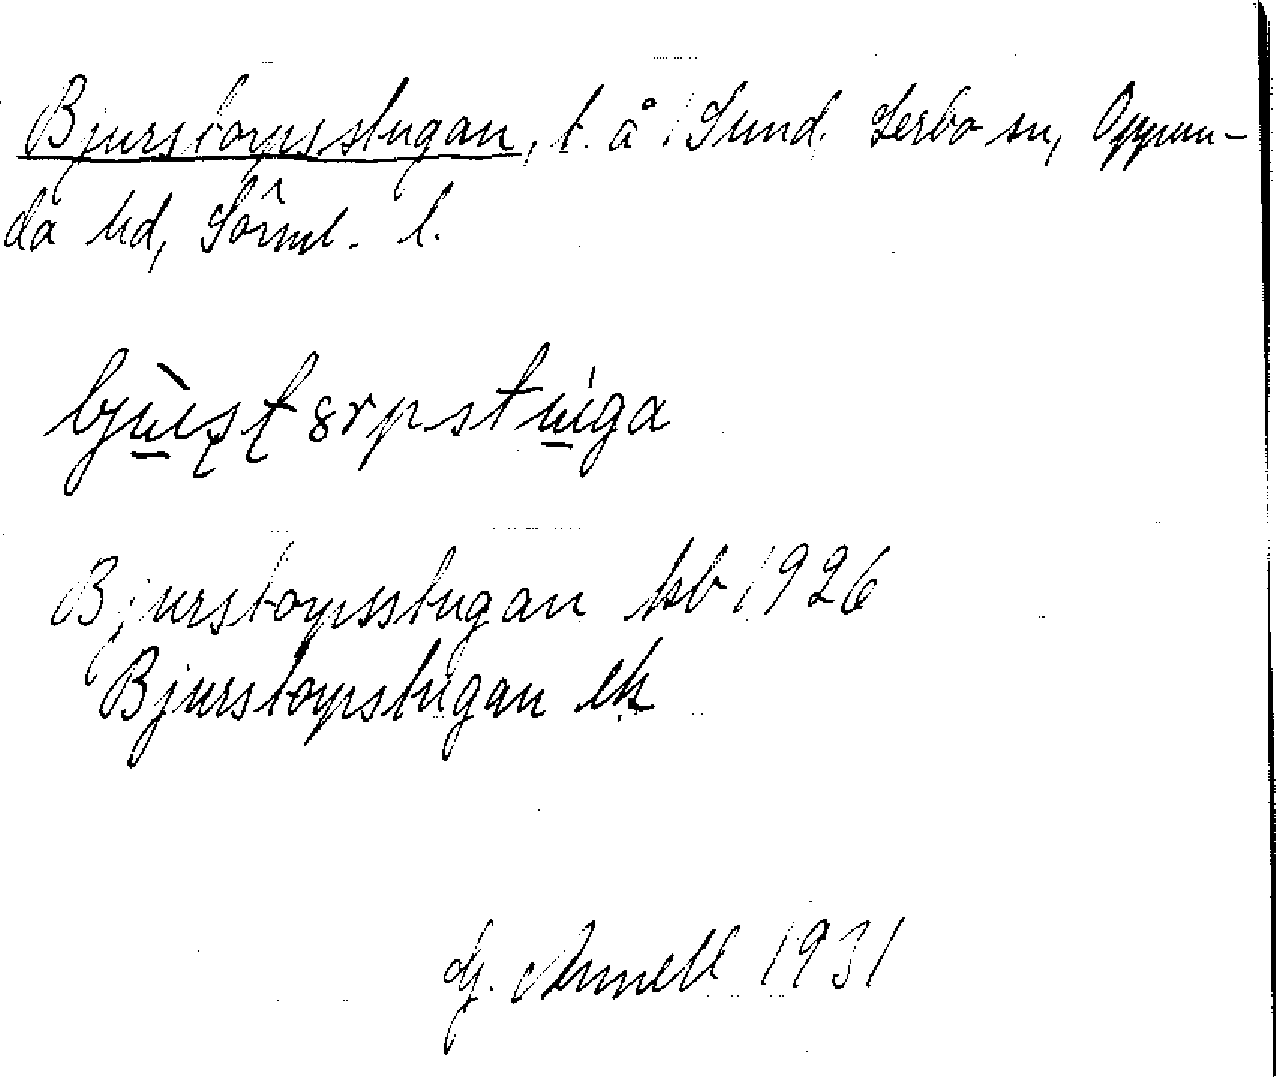 Bjurstorpsstugan, t. å Sund, Lerbo sn, Oppun-
da hd, Sörml. l.
bjùʂʈ8rpstúga
Bjurstorpsstugan kb 1926
Bjurstorpstugan ek
G. Arnell 1931